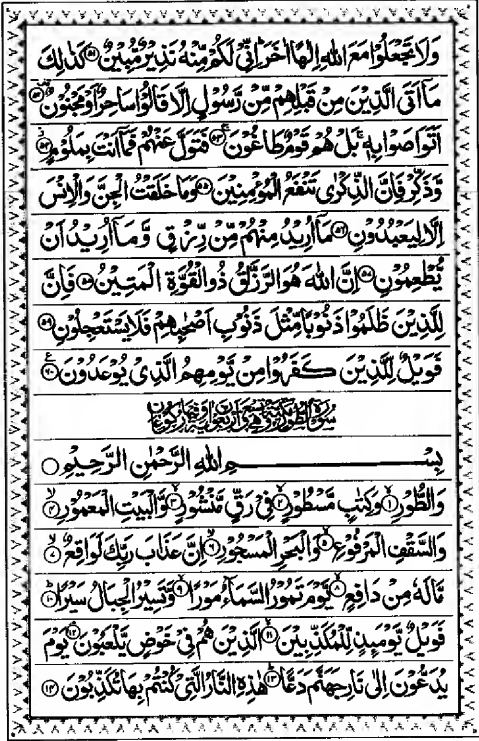 وَلَا تَجْعَلُوا مَعَ اللّٰهِ اِلٰهًا اٰخَرَ اِنِّيْ لَكُمْ مِّنْهُ نَذِيْرٌ مُّبِيْنٌ ۵۱ كَذٰلِكَ
مَآ اَتَى الَّذِيْنَ مِنْ قَبْلِهِمْ مِّنْ رَّسُوْلٍ اِلَّا قَالُوْا سَاحِرٌ اَوْ مَجْنُوْنٌ ۵۲
اَتَوَاصَوْا بِهٖ بَلْ هُمْ قَوْمٌ طَاغُوْنَ ۵۳ فَتَوَلَّ عَنْهُمْ فَمَآ اَنْتَ بِمَلُوْمٍ ۵۴
وَّذَكِّرْ فَاِنَّ الذِّكْرٰى تَنْفَعُ الْمُؤْمِنِيْنَ ۵۵ وَمَا خَلَقْتُ الْجِنَّ وَالْاِنْسَ
اِلَّا لِيَعْبُدُوْنِ ۵۶ مَآ اُرِيْدُ مِنْهُمْ مِّنْ رِّزْقٍ وَّمَآ اُرِيْدُ اَنْ
يُّطْعِمُوْنِ ۵۷ اِنَّ اللّٰهَ هُوَ الرَّزَّاقُ ذُو الْقُوَّةِ الْمَتِيْنُ ۵۸ فَاِنَّ
لِلَّذِيْنَ ظَلَمُوْا ذَنُوْبًا مِّثْلَ ذَنُوْبِ اَصْحٰبِهِمْ فَلَا يَسْتَعْجِلُوْنِ ۵۹
فَوَيْلٌ لِّلَّذِيْنَ كَفَرُوْا مِنْ يَّوْمِهِمُ الَّذِيْ يُوْعَدُوْنَ ۶۰
سُوْرَةُ الطُّوْرِ مَكِّيَّةٌ وَّهِيَ تِسْعٌ وَّاَرْبَعُوْنَ اٰيَةً وَّفِيْهَا رُكُوْعَانِ
بِسْمِ اللّٰهِ الرَّحْمٰنِ الرَّحِيْمِ
وَالطُّوْرِ ۱ وَكِتٰبٍ مَّسْطُوْرٍ ۲ فِيْ رَقٍّ مَّنْشُوْرٍ ۳ وَّالْبَيْتِ الْمَعْمُوْرِ ۴
وَالسَّقْفِ الْمَرْفُوْعِ ۵ وَالْبَحْرِ الْمَسْجُوْرِ ۶ اِنَّ عَذَابَ رَبِّكَ لَوَاقِعٌ ۷
مَّا لَهٗ مِنْ دَافِعٍ ۸ يَّوْمَ تَمُوْرُ السَّمَآءُ مَوْرًا ۹ وَّتَسِيْرُ الْجِبَالُ سَيْرًا ۱۰
فَوَيْلٌ يَّوْمَئِذٍ لِّلْمُكَذِّبِيْنَ ۱۱ الَّذِيْنَ هُمْ فِيْ خَوْضٍ يَّلْعَبُوْنَ ۱۲ يَوْمَ
يُدَعُّوْنَ اِلٰى نَارِ جَهَنَّمَ دَعًّا ۱۳ هٰذِهِ النَّارُ الَّتِيْ كُنْتُمْ بِهَا تُكَذِّبُوْنَ ۱۴